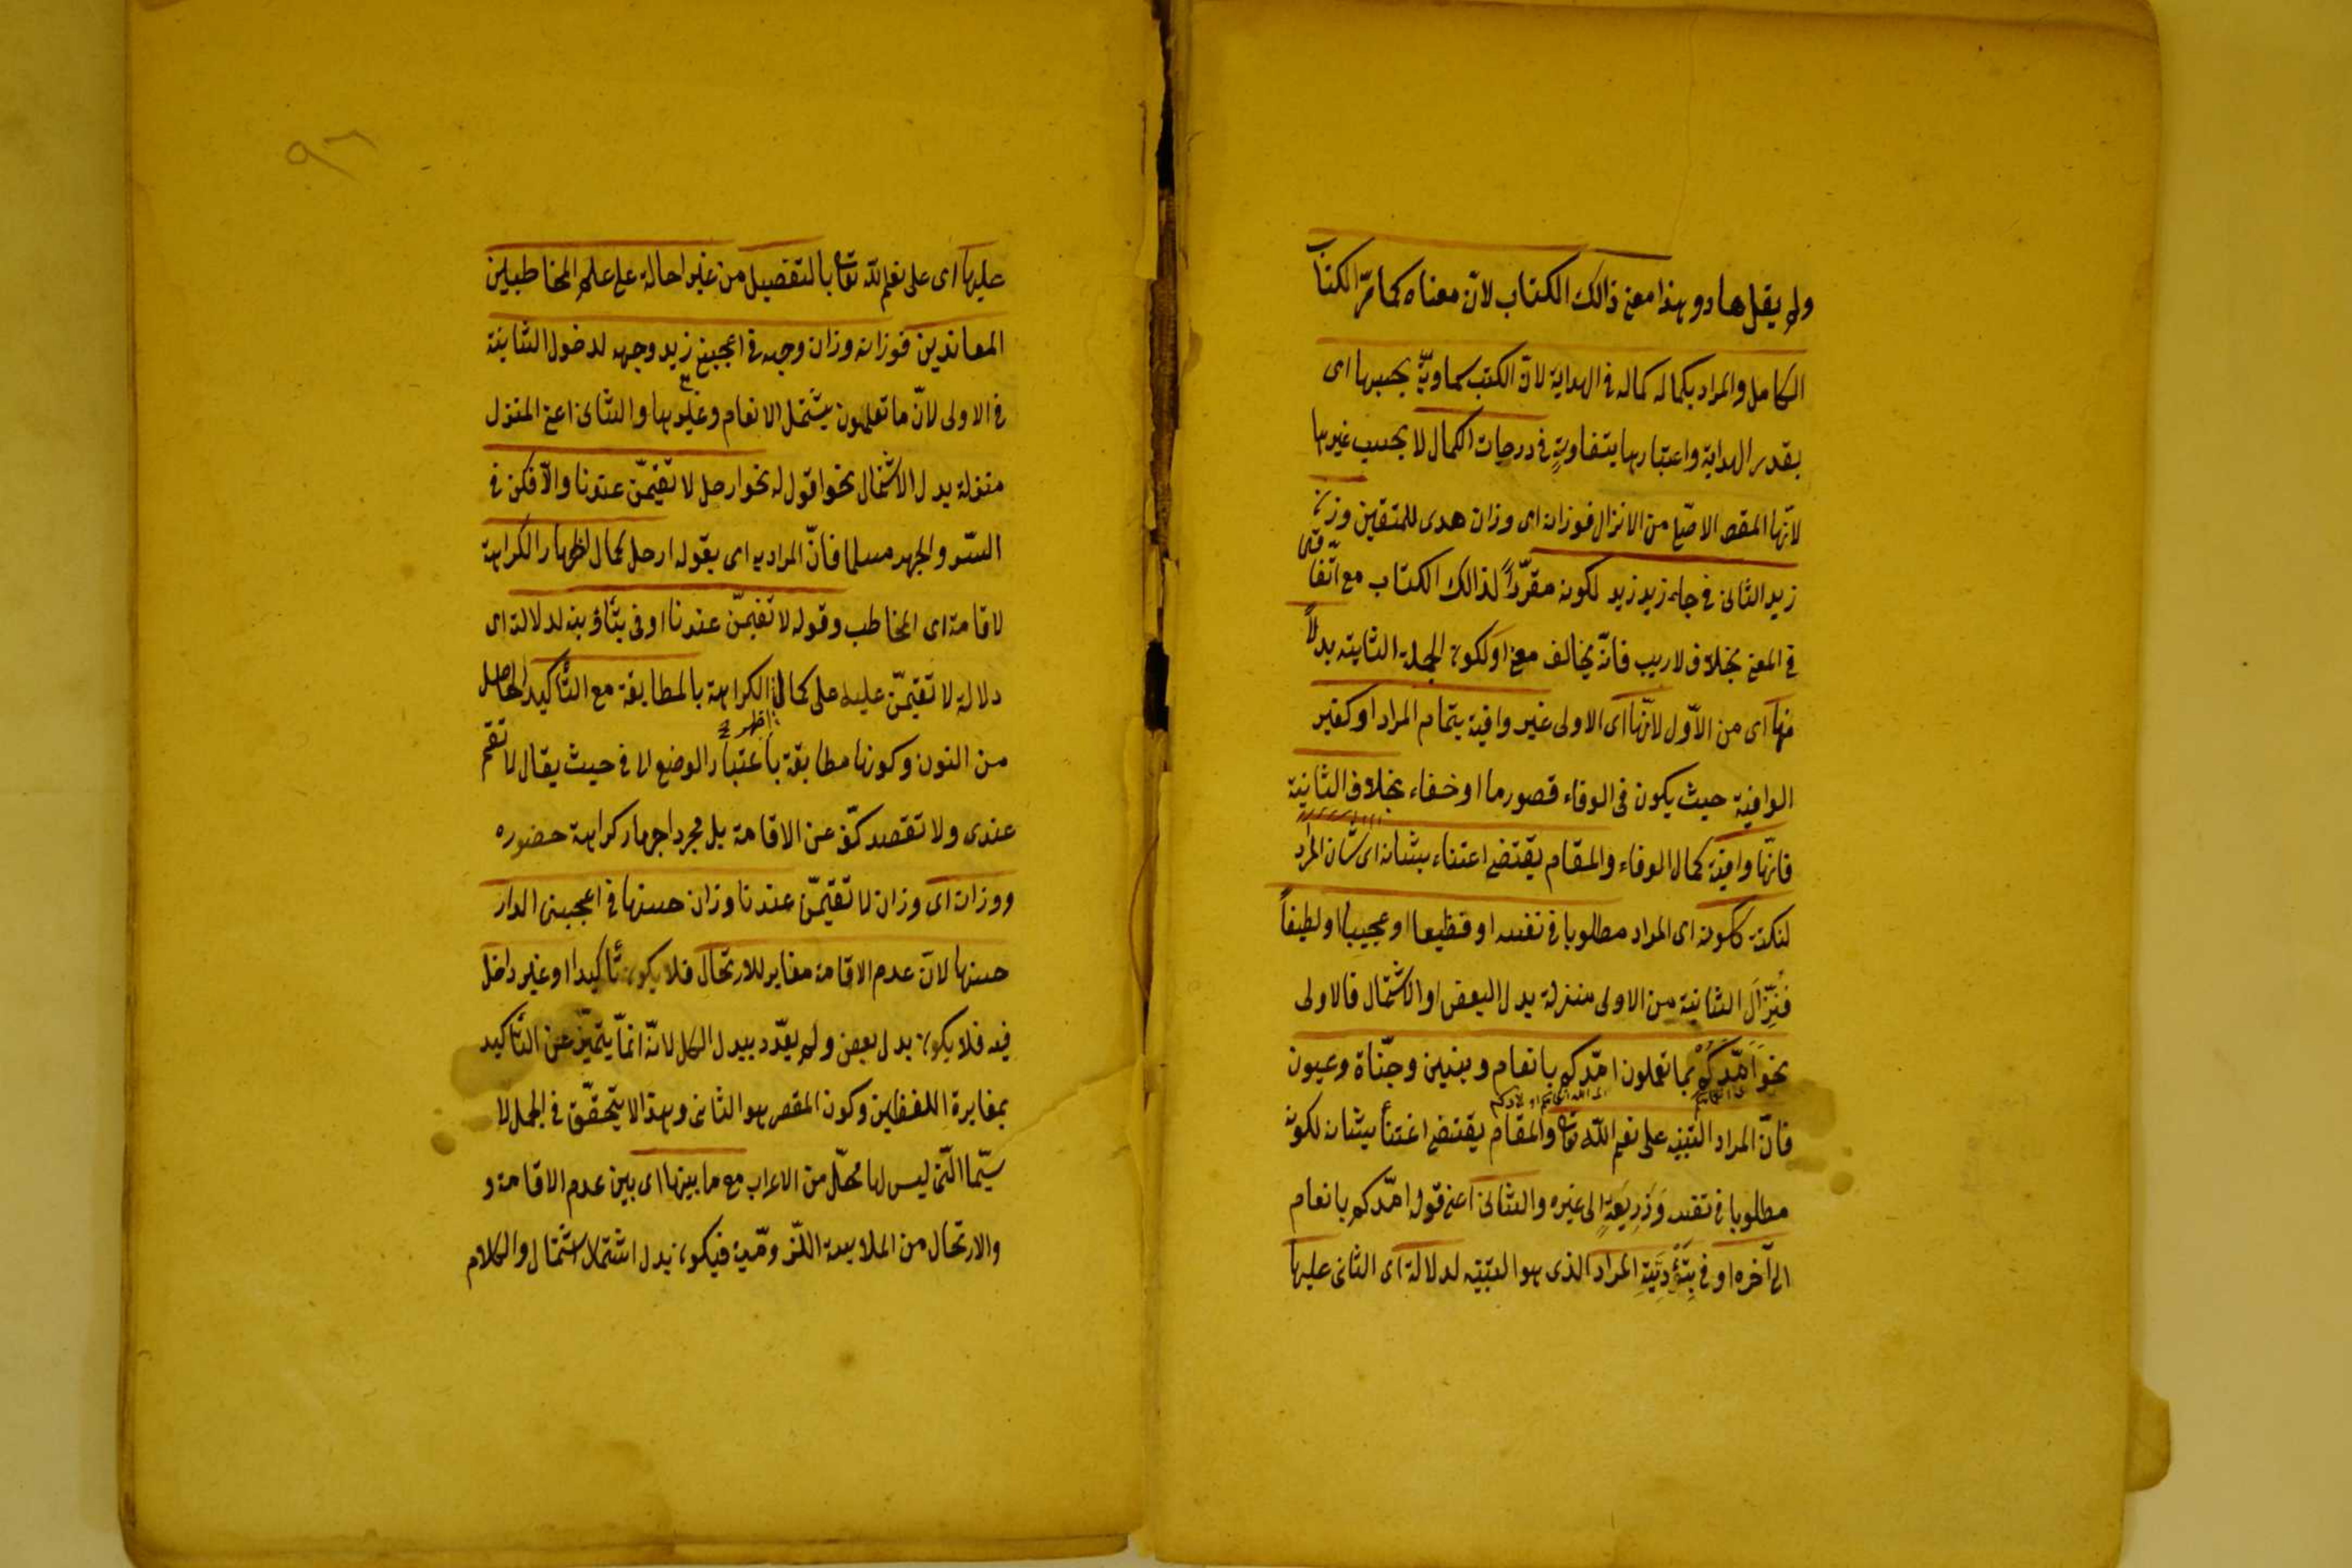 ولم يقل هاد وهذا معنى ذالك الكتاب لانّ معناه كما مرّ الكتاب
الكامل والمراد بكماله كماله فى الهداية لانّ الكتب سماويّة بحسبها اى
بقدر الهداية واعتبارها يتفاوت فى درجات الكمال لا بحسب غيرها
لانّها المقص الاصلى من الانزال فوزانه اى وزان هدى للمتقين وزان
زيد الثانى فى جاء زيد زيد لكونه مقرّراً لذالك الكتاب مع اتّفاقهما
فى المعنى بخلاف لاريب فانّه يخالف معنى او لكون الجملة الثانية بدلاً
منها اى من الاوّل لانّها اى الاولى غير وافية بتمام المراد او كغير
الوافية حيث يكون فى الوفاء قصور ما او خفاء بخلاف الثانية
فانّها وافية كمال الوفاء والمقام يقتضى اعتناء بشانه اى شان المراد
لنكتة ككونه اى المراد مطلوبا فى نفسه او فظيعا او عجيبا او لطيفاً
فنزّل الثانية من الاولى منزلة بدل البعض او الاشتمال فالاولى
نحو امّدكم بما تعلمون امّدكم بانعام وبنين وجنّاة وعيون
فانّ المراد التنبيه على نعم اللّه تعا والمقام يقتضى اعتنأ بشانه لكونه
مطلوبا فى نفسه وذريعة الى غيره والثانى اعنى قوله امّدكم بانعام
الى آخره اوفى بتأدية المراد الذى هو التنبيه لدلالة اى الثانى عليها
٩٦
عليها اى على نعم اللّه تعا بالتفصيل من غير احالة على علم المخاطبين
المعاندين فوزانه وزان وجهه فى اعجبنى زيد وجهه لدخول الثانية
فى الاولى لانّ ما تعلمون يشتمل الانعام وغيرها والثانى اعنى المنزل
منزلة بدل الاشتمال نحو اقول له نحو ارحل لا تقيمّن عندنا والّا فكن فى
السّر والجهر مسلما فانّ المراد به اى بقوله ارحل كمال اظهار الكراهة
لاقامته اى المخاطب وقوله لا تقيمّن عندنا اوفى بتأديته لدلالته اى
دلالة لا تقيمّن عليه على كمال اظهار الكراهة بالمطابقة مع التّأكيد الحاصل
من النون وكونها مطابقة باعتبار الوضع العرفى حيث يقال لا تقم
عندى ولا تقصد كفّه عن الاقامة بل مجرد اجهار كراهة حضوره
ووزانه اى وزان لا تقيمّن عندنا وزان حسنها فى اعجبنى الدار
حسنها لانّ عدم الاقامة مغاير للارتحال فلا يكون تأكيدا او غير داخل
فيه فلا يكون بدل بعض ولم يعدّد ببدل الكل لانّه انمّا يتميّز عن التّأكيد
بمغايرة اللفظين وكون المقص هو الثانى وهذا لا يتحقّق فى الجمل لا
سيّما الّتى ليس لها محلّ من الاعراب مع ما بينها اى بين عدم الاقامة و
والارتحال من الملابسة اللّزوميّة فيكون بدل اشتمال والكلام